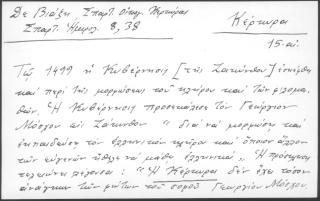 Δε Βιάζη: Σπαρτ. Οἰκογ. Κερκύρας
Σπαρτ. Ἡμερολ. 8, 38
Κέρκυρα
15-αι.
Τῷ 1499 ἡ Κυβέρνησις [τῆς Ζακύνθου] ἐσκέφθη
καὶ περὶ τῆς μορφώσεως τοῦ κλήρου καὶ τῶν φιλομα-
θῶν. Ἡ Κυβέρνησις προσεκάλεσε τὸν Γεώργιον
Μόσχον εἰς Ζάκυνθον "διὰ νὰ μορφώσῃ καὶ
ἐκπαιδεύσῃ τὸν ἑλληνικὸν κλῆρον καὶ ὅποιον ἄλλον
τῶν εὐγενῶν ἤθελε νὰ μάθῃ ἑλληνικά" Ἡ πρόσκλησις
τελειώνει λέγουσα: "Ἡ Κέρκυρα δὲν ἔχει τόσον
ἀνάγκην τῶν φώτων τοῦ σοφοῦ Γεωργίου Μόσχου.